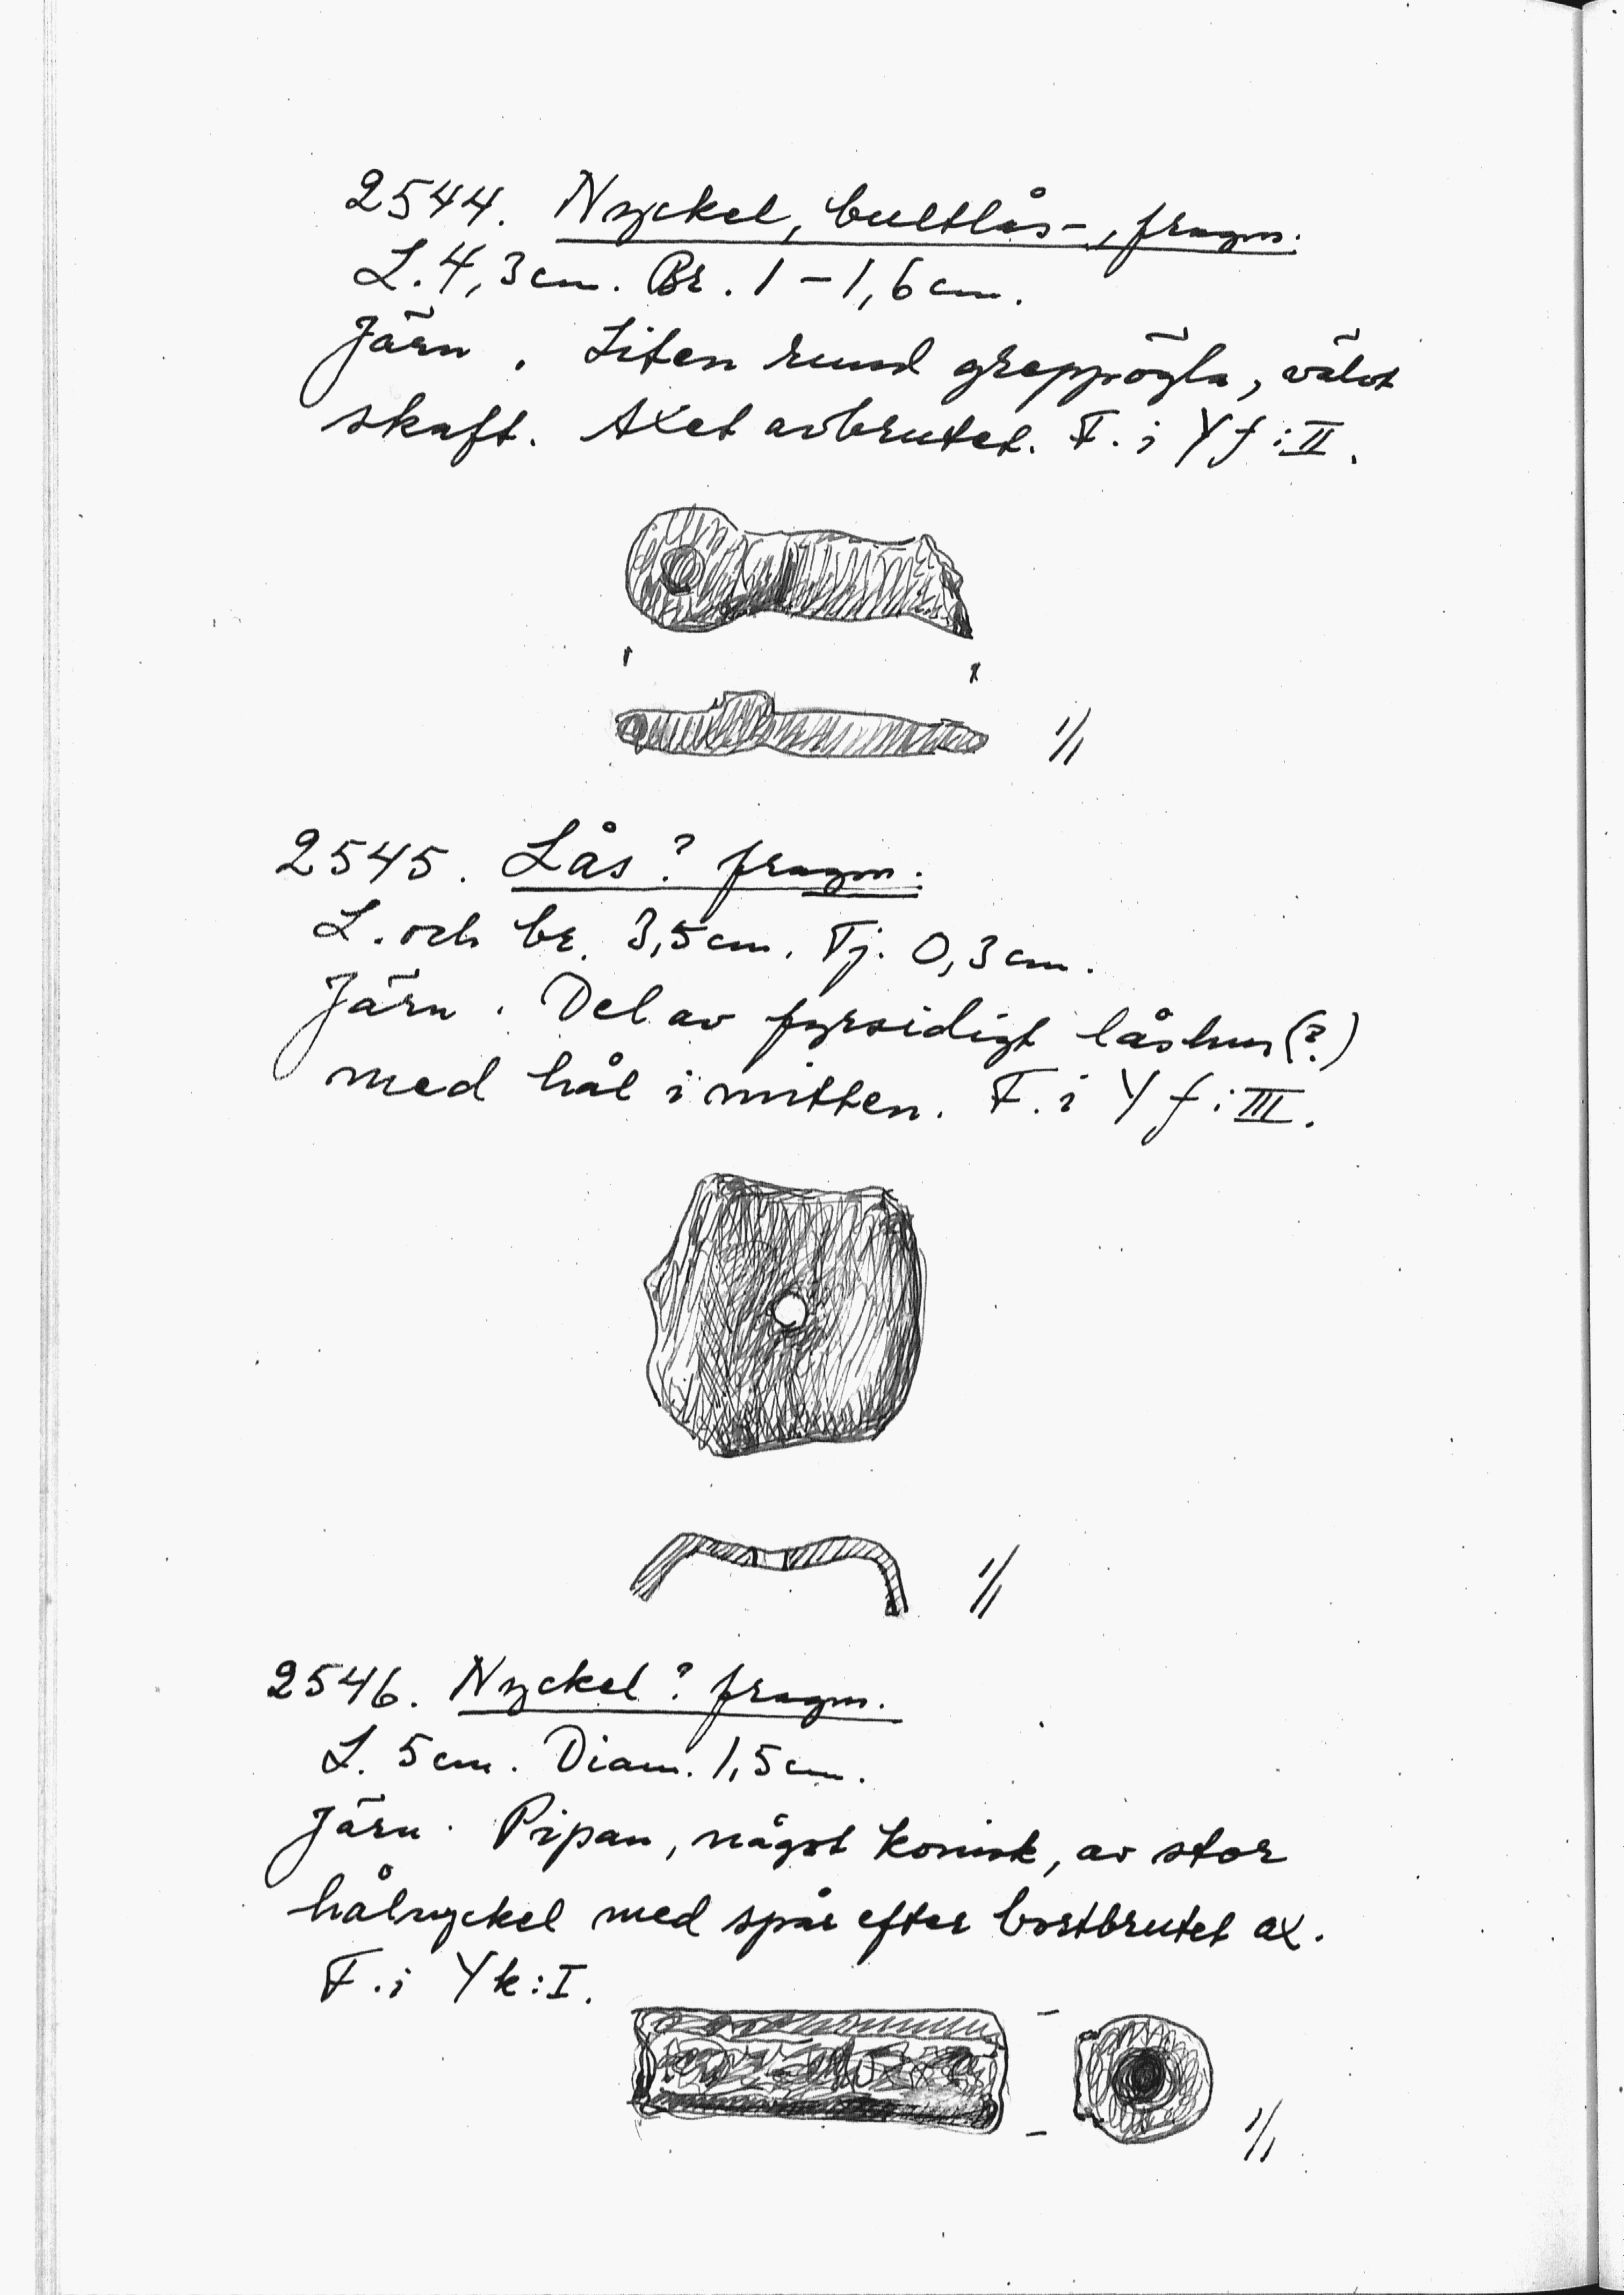 2544. Nyckel, bultlås-, fragm.
L. 4,3 cm. Br. 1 – 1,6 cm.
Järn. Liten rund greppögla, välvt
skaft. Axet avbrutet. F. i Yf:II.
1/1
2545. Lås? fragm.
L. och br. 3,5 cm. Tj. 0,3 cm.
Järn. Del av fyrsidigt låshus (?)
med hål i mitten. F. i Yf:III.
1/1
2546. Nyckel? fragm.
L. 5 cm. Diam. 1,5 cm.
Järn. Pipan, något konisk, av stor
hålnyckel med spår efter bortbrutet ax.
F. i Yk:I.
1/1